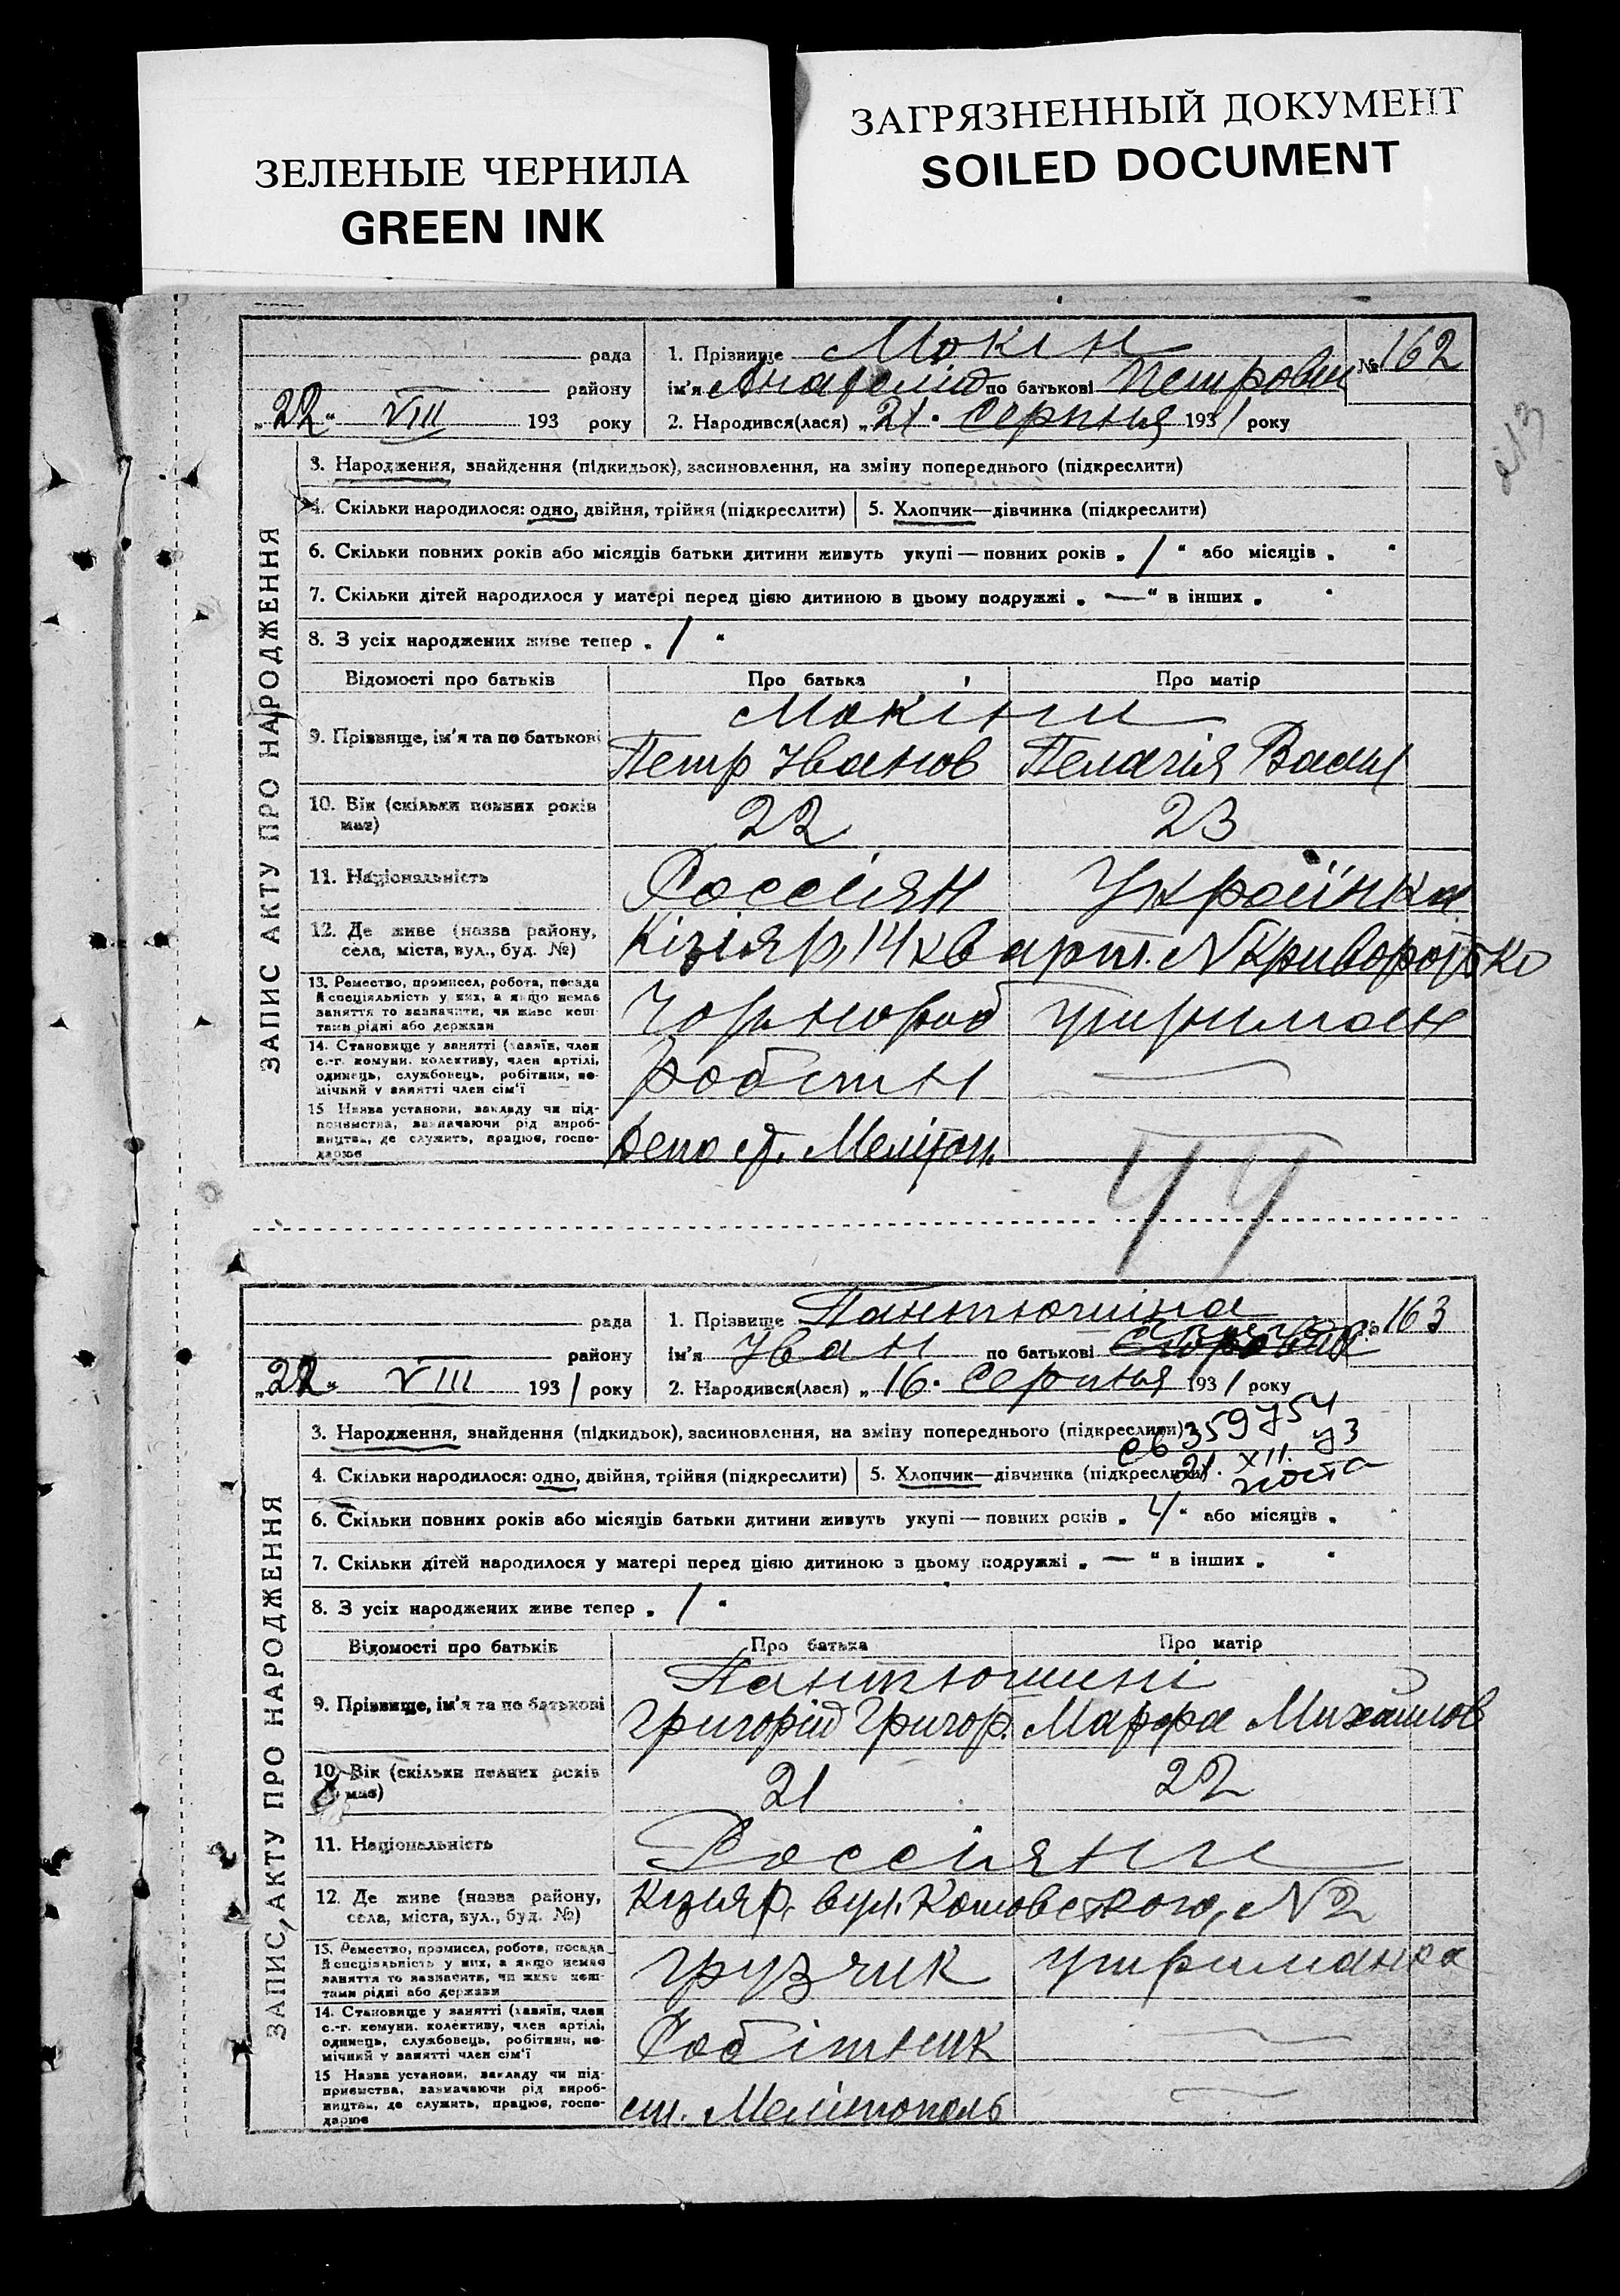 ЗЕЛЕНЫЕ ЧЕРНИЛА
GREEN INK
ЗАГРЯЗНЕННЫЙ ДОКУМЕНТ
SOILED DOCUMENT
ЗАПИС АКТУ ПРО НАРОДЖЕННЯ
рада
району
„22“ VIII 193 року
1. Прізвище Мокін
№ 162
ім'я Анатолій по батькові Петрович
2. Народився(лася) „21“ Серпня 1931 року
3. Народження, знайдення (підкидьок), засиновлення, на зміну попереднього (підкреслити)
4. Скільки народилося: одно, двійня, трійня (підкреслити)
5. Хлопчик—дівчинка (підкреслити)
6. Скільки повних років або місяців батьки дитини живуть укупі — повних років „ 1 “ або місяців „ “
7. Скільки дітей народилося у матері перед цією дитиною в цьому подружжі „ — “ в інших „ “
8. З усіх народжених живе тепер „ 1 “
Відомості про батьків Про батька Про матір
9. Прізвище, ім'я та по батькові
Мокіни
Петр Іванов Пелагія Васил
10. Вік (скільки повних років має) 22 23
11. Національність Россіян Українка
12. Де живе (назва району, села, міста, вул., буд. №) Кізіяр, 14 кварт.
13. Ремество, промисел, робота, посада й спеціяльність у них, а якщо немає заняття то зазначити, чи живе коштами рідні або держави
Чорнороб утриман
14. Становище у занятті (хазяїн, член с.-г. комуни, колективу, член артілі, одинець, службовець, робітник, помічний у занятті член сім'ї
Робітн —
15 Назва установи, закладу чи підприємства, зазначаючи рід виробництва, де служить, працює, господарює
Депо ст. Мелітоп.
44
213
ЗАПИС АКТУ ПРО НАРОДЖЕННЯ
рада
району
„22“ VIII 1931 року
1. Прізвище Пантюшина
№ 163
ім'я Іван по батькові
2. Народився(лася) „16“ Серпня 1931 року
3. Народження, знайдення (підкидьок), засиновлення, на зміну попереднього (підкреслити)
св 359754
21. XII.
4. Скільки народилося: одно, двійня, трійня (підкреслити)
5. Хлопчик—дівчинка (підкреслити)
6. Скільки повних років або місяців батьки дитини живуть укупі — повних років „ 4 “ або місяців „ “
7. Скільки дітей народилося у матері перед цією дитиною з цьому подружжі „ — “ в інших „ “
8. З усіх народжених живе тепер „ 1 “
Відомості про батьків Про батька Про матір
9. Прізвище, ім'я та по батькові
Пантюшині
Григорій Григор. Марфа Михайлов
10. Вік (скільки повних років має) 21 22
11. Національність Россіяни
12. Де живе (назва району, села, міста, вул., буд. №) Кізіяр, вул. Котовского, N 2
13. Ремество, промисел, робота, посада й спеціяльність у них, а якщо немає заняття то зазначити, чи живе коштами рідні або держави
грузчик утриманка
14. Становище у занятті (хазяїн, член с.-г. комуни, колективу, член артілі, одинець, службовець, робітник, помічний у занятті член сім'ї
Робітник —
15 Назва установи, закладу чи підприємства, зазначаючи рід виробництва, де служить, працює, господарює
ст. Мелітополь —